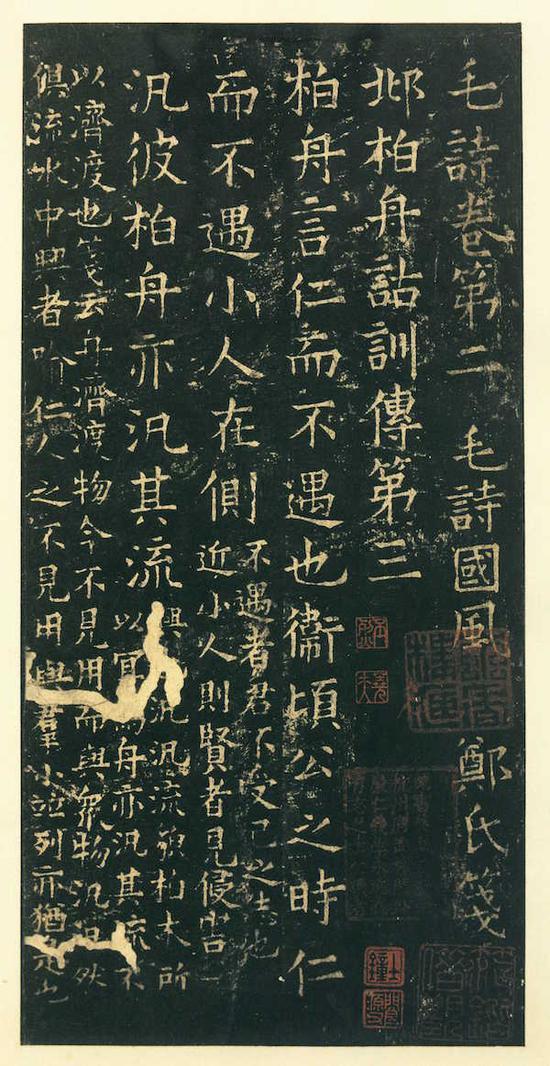 毛詩卷第二 毛詩國風 鄭氏箋
邶柏舟詁訓傳第三
柏舟言仁而不遇也衞頃公之時仁
而不遇小人在側
不遇者君不受己之志也
近小人則賢者見侵害
汎彼柏舟亦汎其流
興汎汎流柏木所
以宜爲舟亦汎其流不
以濟渡也箋云舟濟渡物今不見用而與衆物汎汎然
俱流水中興者喻仁人之不見用與羣小並列亦猶是也
士鐘
閬源父